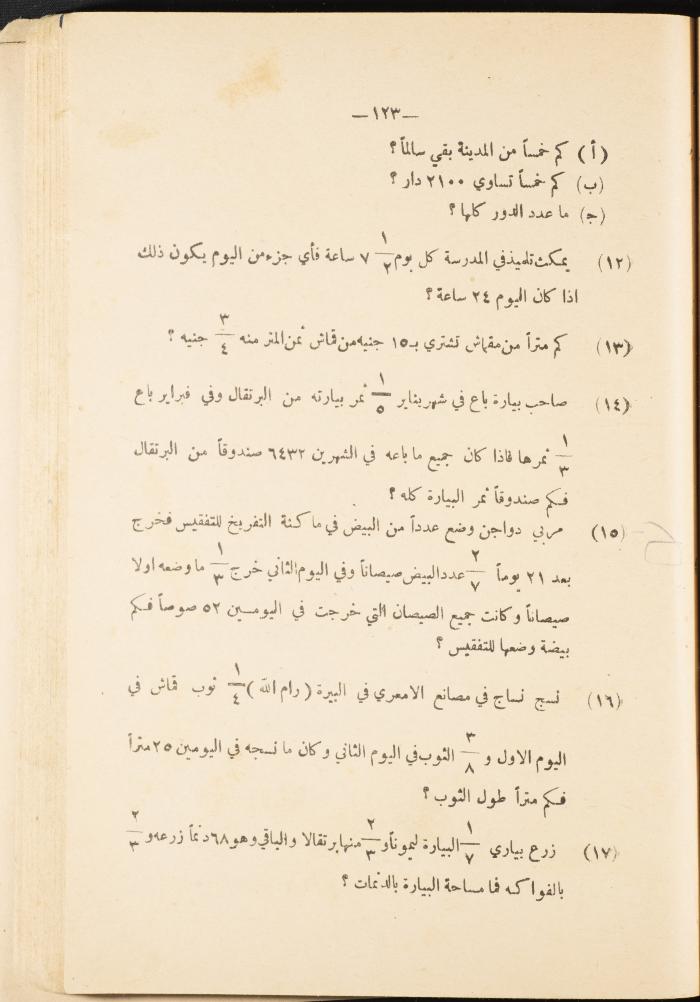 —١٢٣—
(أ) كم خمساً من المدينة بقي سالماً؟
(ب) كم خمساً تساوي ٢١٠٠ دار؟
(ج) ما عدد الدور كلها؟
(١٢) يمكث تلميذ في المدرسة كل يوم ١/٢ ٧ ساعة فأي جزء من اليوم يكون ذلك
اذا كان اليوم ٢٤ ساعة؟
(١٣) كم متراً من مقاش تشتري بـ ١٥ جنيه من قماش ثمن المتر منه ٣/٤ جنيه؟
(١٤) صاحب بيارة باع في شهر يناير ١/٥ ثمر بيارته من البرتقال وفي فبراير باع
١/٣ ثمرها فاذا كان جميع ما باعه في الشهرين ٦٤٣٢ صندوقاً من البرتقال
فكم صندوقاً ثمر البيارة كله؟
(١٥) مربي دواجن وضع عدداً من البيض في ماكنة التفريخ للتفقيس فخرج
بعد ٢١ يوماً ٢/٧ عدد البيض صيصاناً وفي اليوم الثاني خرج ١/٣ ما وضعه اولا
صيصاناً وكانت جميع الصيصان التي خرجت في اليومين ٥٢ صوصاً فكم
بيضة وضعها للتفقيس؟
(١٦) نسج نساج في مصانع الامعري في البيرة (رام الله) ١/٤ ثوب قماش في
اليوم الاول و ٣/٨ الثوب في اليوم الثاني وكان ما نسجه في اليومين ٢٥ متراً
فكم متراً طول الثوب؟
(١٧) زرع بياري ١/٧ البيارة ليموناً و ٢/٣ منها برتقالا والباقي وهو ٦٨ دنماً زرعه و ٢/٣
بالفواكه فما مساحة البيارة بالدنمات؟